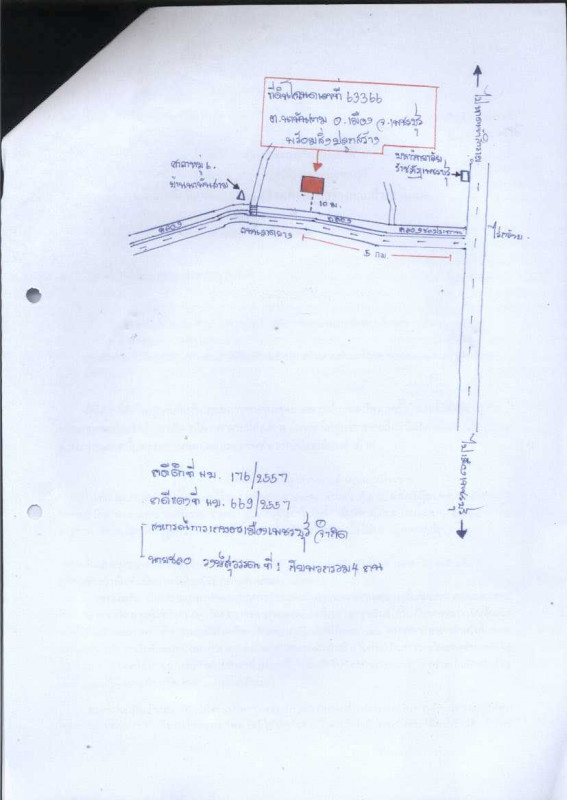 ที่ดินโฉนดเลขที่ 63366
ต.นาพันสาม อ.เมือง จ.เพชรบุรี
พร้อมสิ่งปลูกสร้าง
ศาลาหมู่ 6
บ้านนาพันสาม
มหาวิทยาลัย
ราชภัฏเพชรบุรี
10 ม.
คลอง
คลอง
คลองชลประทาน
ถนนลาดยาง
5 กม.
ไปเมืองเพชรบุรี
คดีดำที่ ผบ. 176/2557
คดีแดงที่ ผบ. 669/2557
สหกรณ์การเกษตรเมืองเพชรบุรี จำกัด
ที่ 1 กับพวกรวม 4 คน